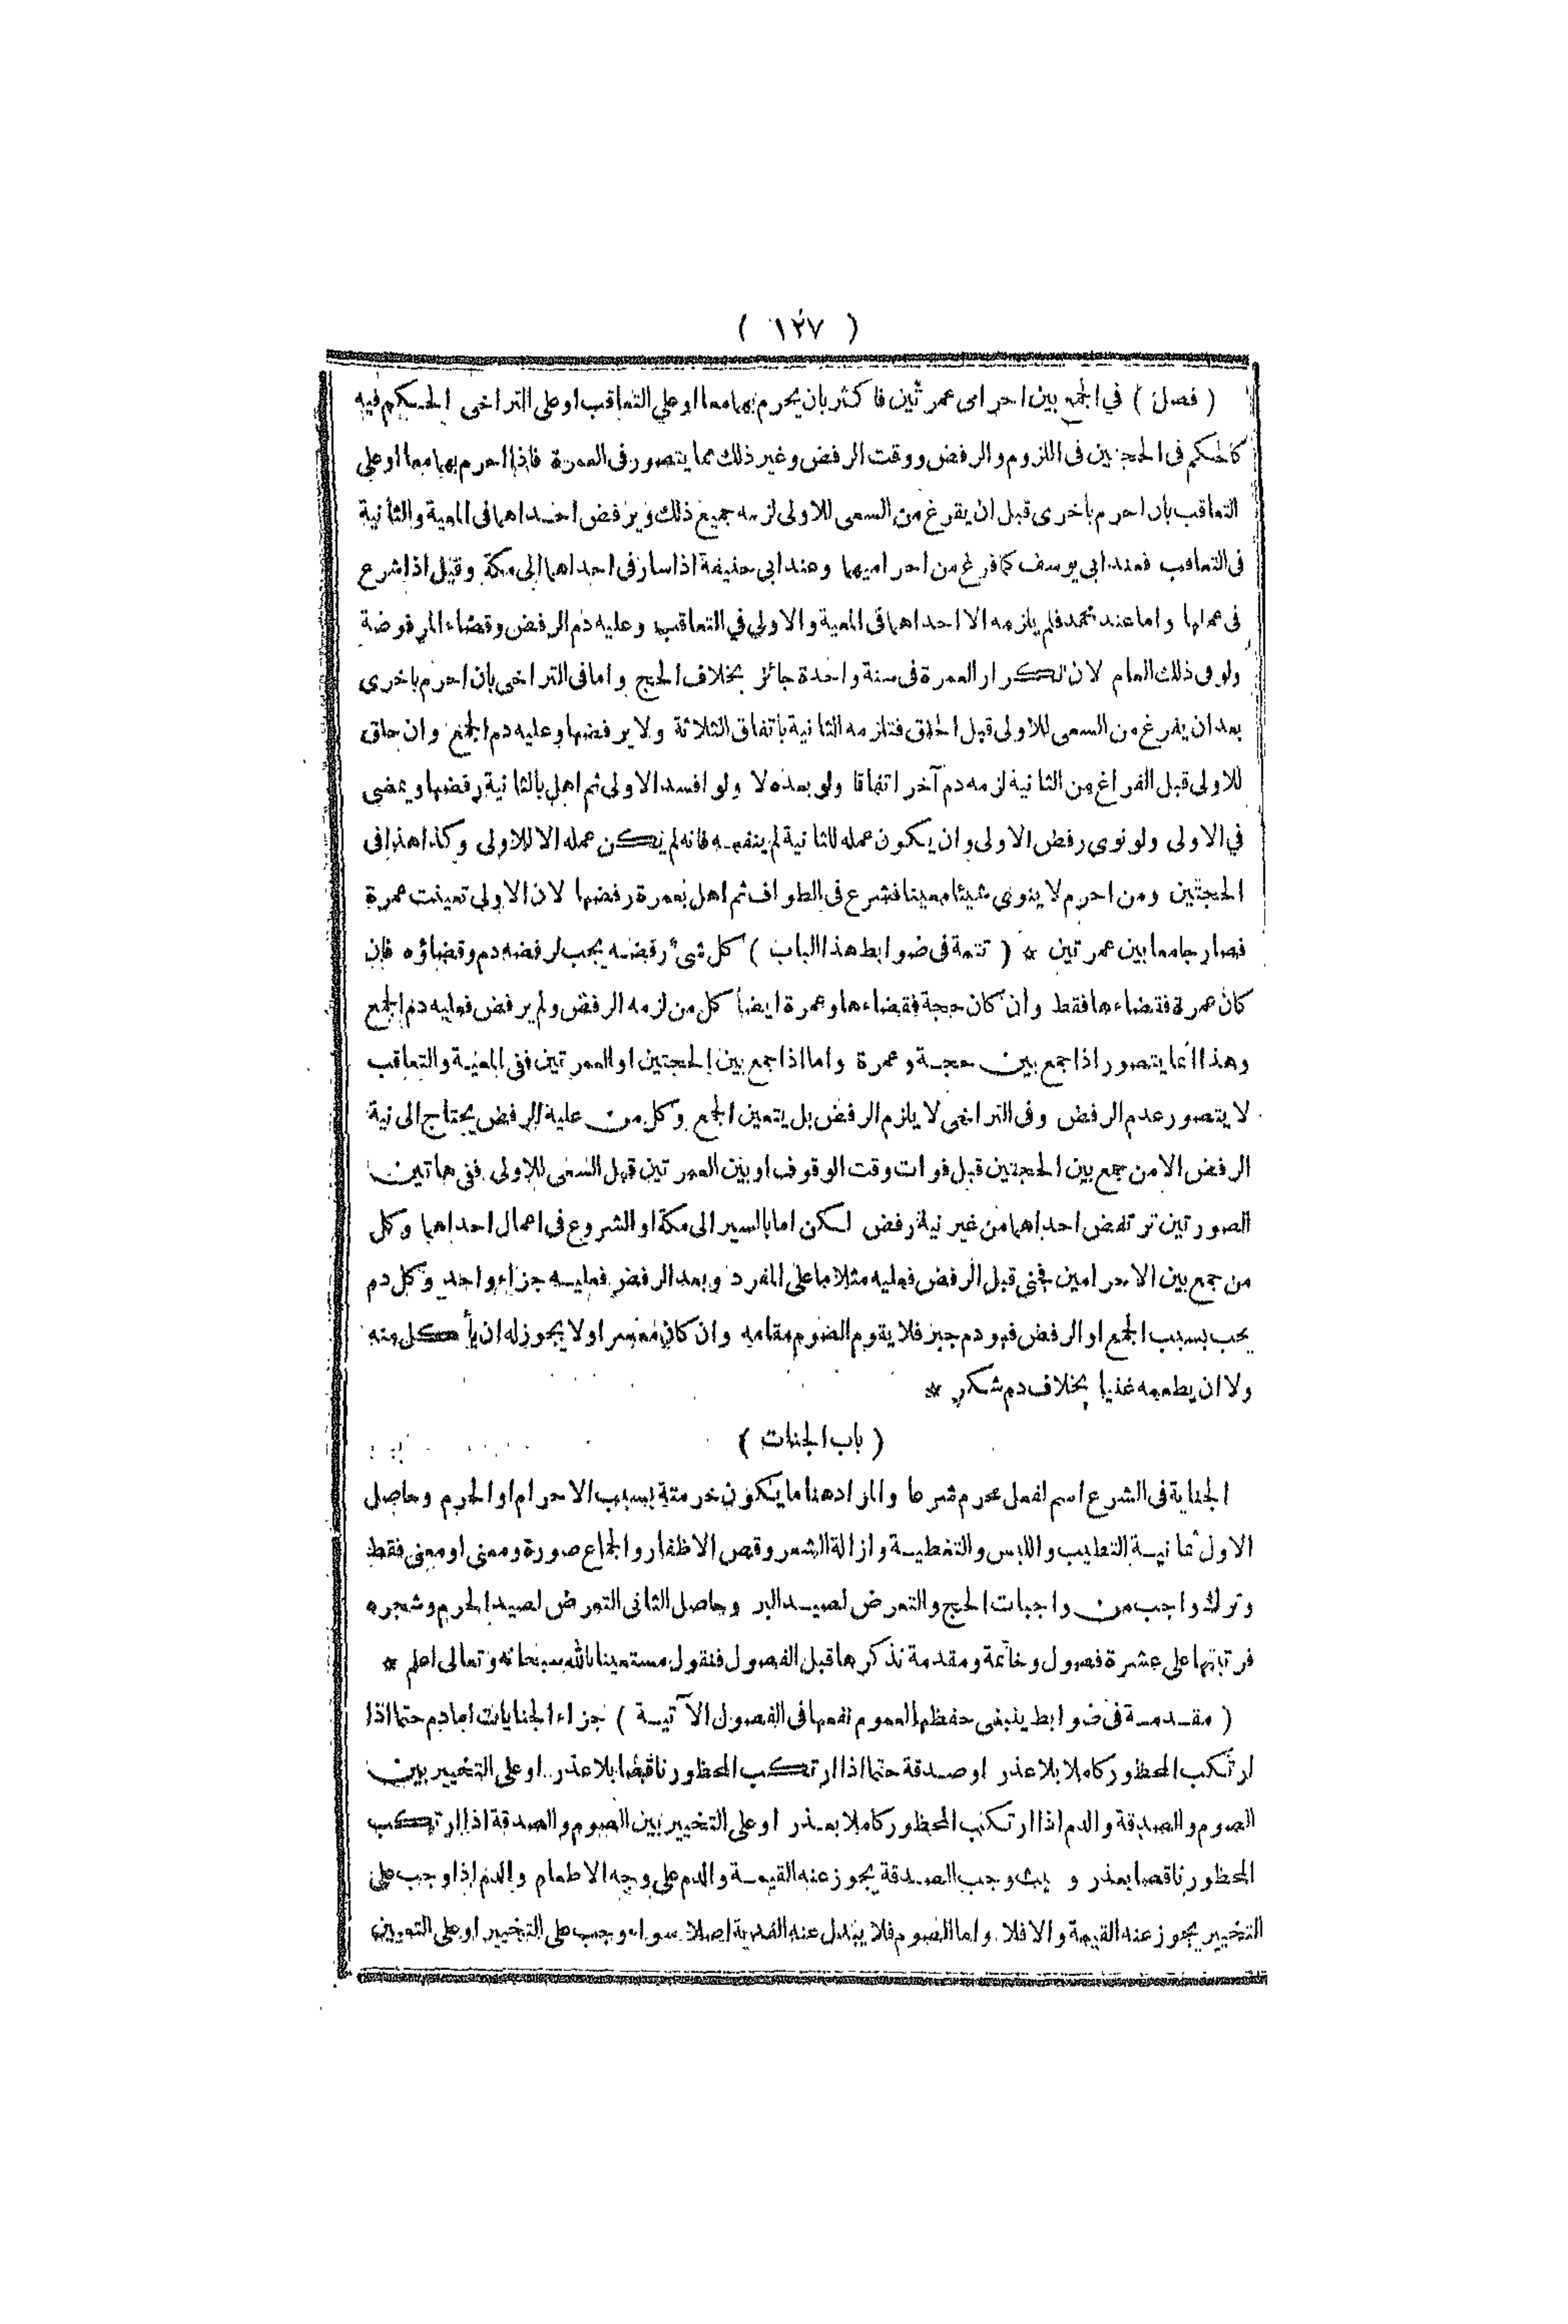 ( ١٢٧ )
( فصل ) في الجمع بين احرامى عمرتين فاكثر بان يحرم بهما معا او على التعاقب او على التراخى الحكم فيه
كالحكم فى الحجتين فى اللزوم والرفض ووقت الرفض وغير ذلك مما يتصور فى العمرة فاذا احرم بهما معا او على
التعاقب بان احرم بأخرى قبل ان يفرغ من السعى للاولى لزمه جميع ذلك ويرفض احداهما فى المعية والثانية
فى التعاقب فعند ابى يوسف كما فرغ من احراميهما وعند ابى حنيفة اذا سار فى احداهما الى مكة وقيل اذا شرع
فى عملها واما عند محمد فلم يلزمه الا احداهما فى المعية والاولى في التعاقب وعليه دم الرفض وقضاء المرفوضة
ولو فى ذلك العام لان تكرار العمرة فى سنة واحدة جائز بخلاف الحج واما فى التراخى بان احرم باخرى
بعد ان يفرغ من السعى للاولى قبل الحلق فتلزمه الثانية باتفاق الثلاثة ولا يرفضها وعليه دم الجمع وان حلق
للاولى قبل الفراغ من الثانية لزمه دم آخر اتفاقا ولو بعده لا ولو افسد الاولى ثم اهل بالثانية رفضها ويمضى
في الاولى ولو نوى رفض الاولى وان يكون عمله للثانية لم ينفعه فانه لم يكن عمله الا للاولى وكذا هذا فى
الحجتين ومن احرم لا ينوى شيئا معينا فشرع فى الطواف ثم اهل بعمرة رفضها لان الاولى تعينت عمرة
فصار جامعا بين عمرتين * ( تتمة فى ضوابط هذا الباب ) كل شئ رفضه يجب لرفضه دم وقضاؤه فان
كان عمرة فقضاءها فقط وان كان حجة فقضاءها وعمرة ايضا كل من لزمه الرفض ولم يرفض فعليه دم الجمع
وهذا انما يتصور اذا جمع بين حجة وعمرة واما اذا جمع بين الحجتين او العمرتين ففى المعية والتعاقب
لا يتصور عدم الرفض وفى التراخى لا يلزم الرفض بل يتعين الجمع وكل من عليه الرفض يحتاج الى نية
الرفض الا من جمع بين الحجتين قبل فوات وقت الوقوف او بين العمرتين قبل السعى للاولى ففى هاتين
الصورتين ترتفض احداهما من غير نية رفض لكن اما بالسير الى مكة او الشروع فى اعمال احداهما وكل
من جمع بين الاحرامين فجنى قبل الرفض فعليه مثلا ما على المفرد وبعد الرفض فعليه جزاء واحد وكل دم
يجب بسبب الجمع او الرفض فهو دم جبر فلا يقوم الصوم مقامه وان كان معسرا ولا يجوز له ان يأكل منه
ولا ان يطعمه غنيا بخلاف دم شكر *
( باب الجنات )
الجناية فى الشرع اسم لفعل محرم شرعا والمراد هنا ما يتكون حرمته بسبب الاحرام او الحرم وحاصل
الاول ثمانية التطيب واللبس والتغطية وازالة الشعر وقص الاظفار والجماع صورة ومعنى او معنى فقط
وترك واجب من واجبات الحج والتعرض لصيد البر وحاصل الثانى التعرض لصيد الحرم وشجره
فرتبتها على عشرة فصول وخاتمة ومقدمة نذكرها قبل الفصول فنقول مستعينا بالله سبحانه وتعالى اعلم *
( مقدمة فى ضوابط ينبغى حفظها لعموم نفعها فى الفصول الآتية ) جزاء الجنايات اما دم حتما اذا
ارتكب المحظور كاملا بلا عذر او صدقة حتما اذا ارتكب المحظور ناقصا بلا عذر او على التخيير بين
الصوم والصدقة والدم اذا ارتكب المحظور كاملا بعذر او على التخيير بين الصوم والصدقة اذا ارتكب
المحظور ناقصا بعذر و يث وجب الصدقة يجوز عنه القيمة والدم على وجه الاطعام والدم اذا وجب على
التخيير يجوز عنه القيمة والا فلا واما الصوم فلا يبدل عنه الفدية اصلا سواء وجب على التخيير او على التعيين